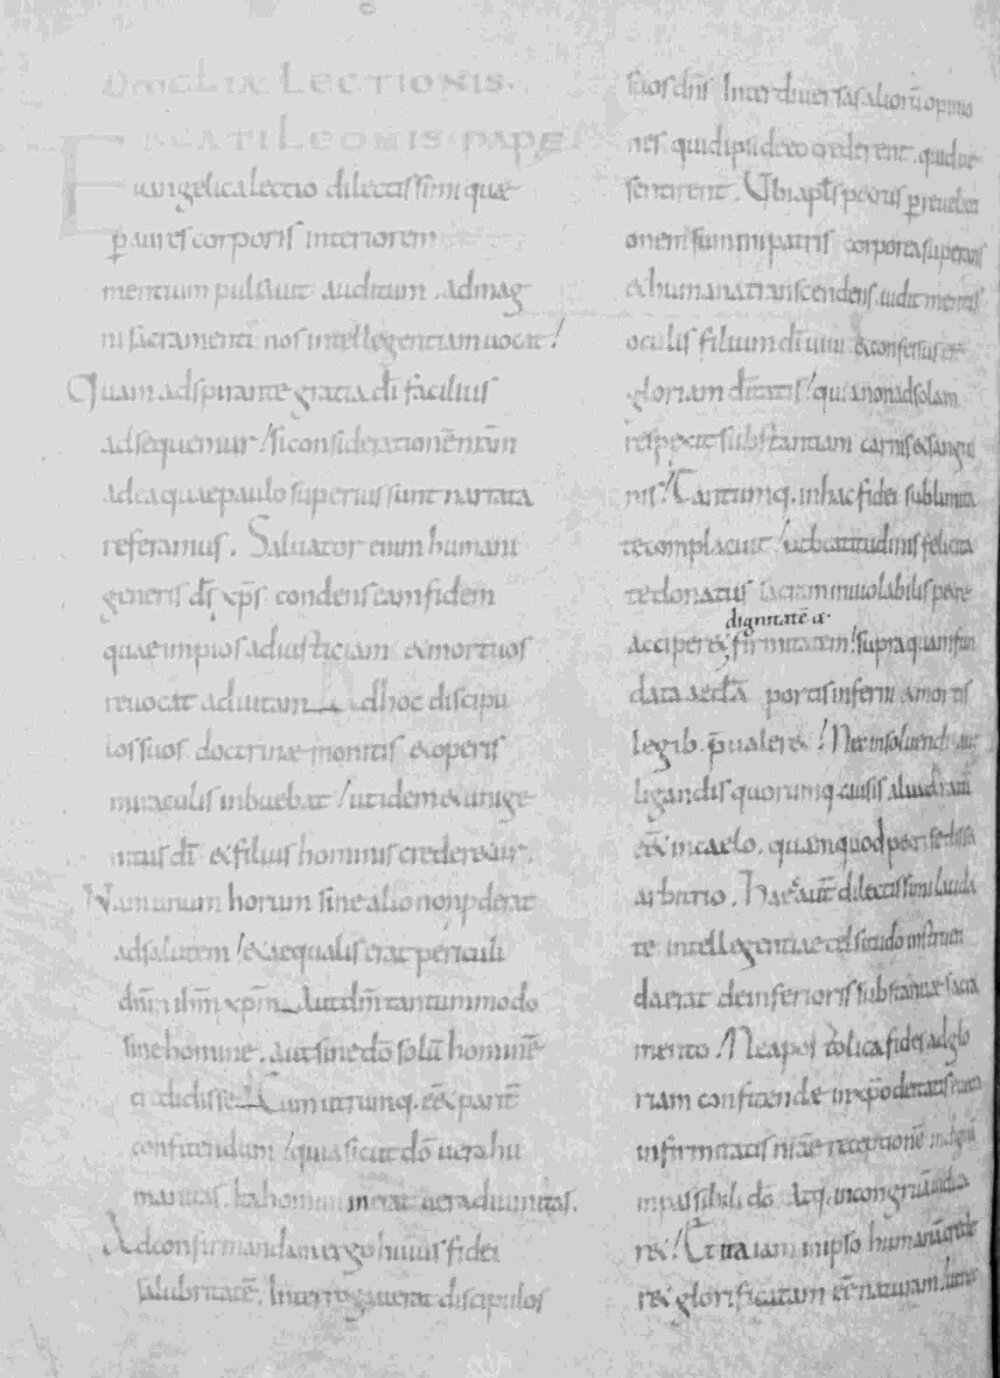 OMELIAE LECTIONIS.
BEATI LEONIS PAPE
Euangelica lectio dilectissimi quae
p aures corporis interiorem
mentium pulsauit auditum. ad mag
ni sacramenti nos intellegentiam uocat!
Quam adspirante gratia di facilius
adsequemur! si considerationē nr̄am
ad ea quae paulo superius sunt narrata
referamus. Saluator enim humani
generis dſ xp̄s condens eam fidem
quae impios ad iusticiam & mortuos
reuocat ad uitam Ad hoc discipu
los suos doctrinae monitis & operis
miraculis inbuebat! ut idem & unige
nitus dī & filius hominis crederetur.
Nam unum horum sine alio non pderat
ad salutem! & aequalis erat periculi
dn̄m ihm̄ xp̄m Aut dm̄ tantummodo
sine homine. aut sine dō solū hominē
credidisse Cum utrumq. eēt parit̄
confitendum! quia sicut dō uera hu
manitas. Ita homini inerat uera diuinitas.
Ad confirmandam ergo huius fidei
salubritatē. Interrogauerat discipulos
suos dn̄s Inter diuersas aliorū opinio
nes quid ipsi de eo crederent. quidue
sentirent. Ubi apl̄s petrus p reuelati
onem summi patris corporea superans
& humana transcendens. uidit mentis
oculis filium dī uiui & confessus est
gloriam dītatis! quia non ad solam
respexit substantiam carnis & sangui
nis! Tantumq. in hac fidei sublimita
te complacuit! ut beatitudinis felicita
te donatus sacram inuiolabilis petre
dignitatē a
acciper& firmitatem! supra quam fun
data aeccl̄a portis inferni & mortis
legib. p̄ualer&! Nec in soluendis aut
ligandis quorumq. causis aliud ratū
eēt in caelo. quam quod petri sedisset
arbitrio. Haec aut̄ dilectissimi lauda
te intellegentiae celsitudo instruen
da erat de inferioris substantiae sacra
mento! Ne apostolica fides ad glo
riam confitendae in xp̄o deitatis euecta
infirmitatis nr̄ae receptionē indignā
inpassibili dō Atq. incongruā iudica
r&! Et ita iam in ipso humanā crede
r& glorificatam eē naturam.